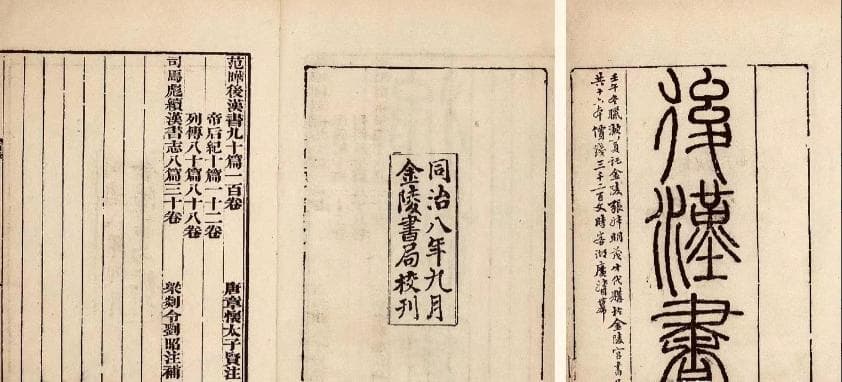 後漢書
壬午冬臘託金陵張明茂才代購於金陵官書
共十六本 價錢三千二百文時客湖廣幕
同治八年九月
金陵書局校刊
范曄後漢書九十篇一百卷 唐章懷太子賢注
帝后紀十篇一十二卷
列傳八十篇八十八卷
司馬彪續漢書志八篇三十卷 梁剡令劉昭注補